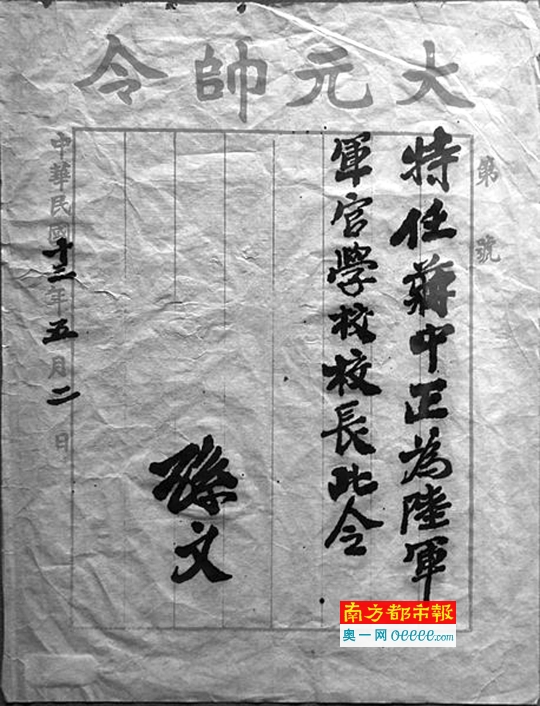 大元帥令
第 號
特任蔣中正為陸軍
軍官學校校長此令
孫文
中華民國十三年五月二日
南方都市報
奥一网oeeee.com